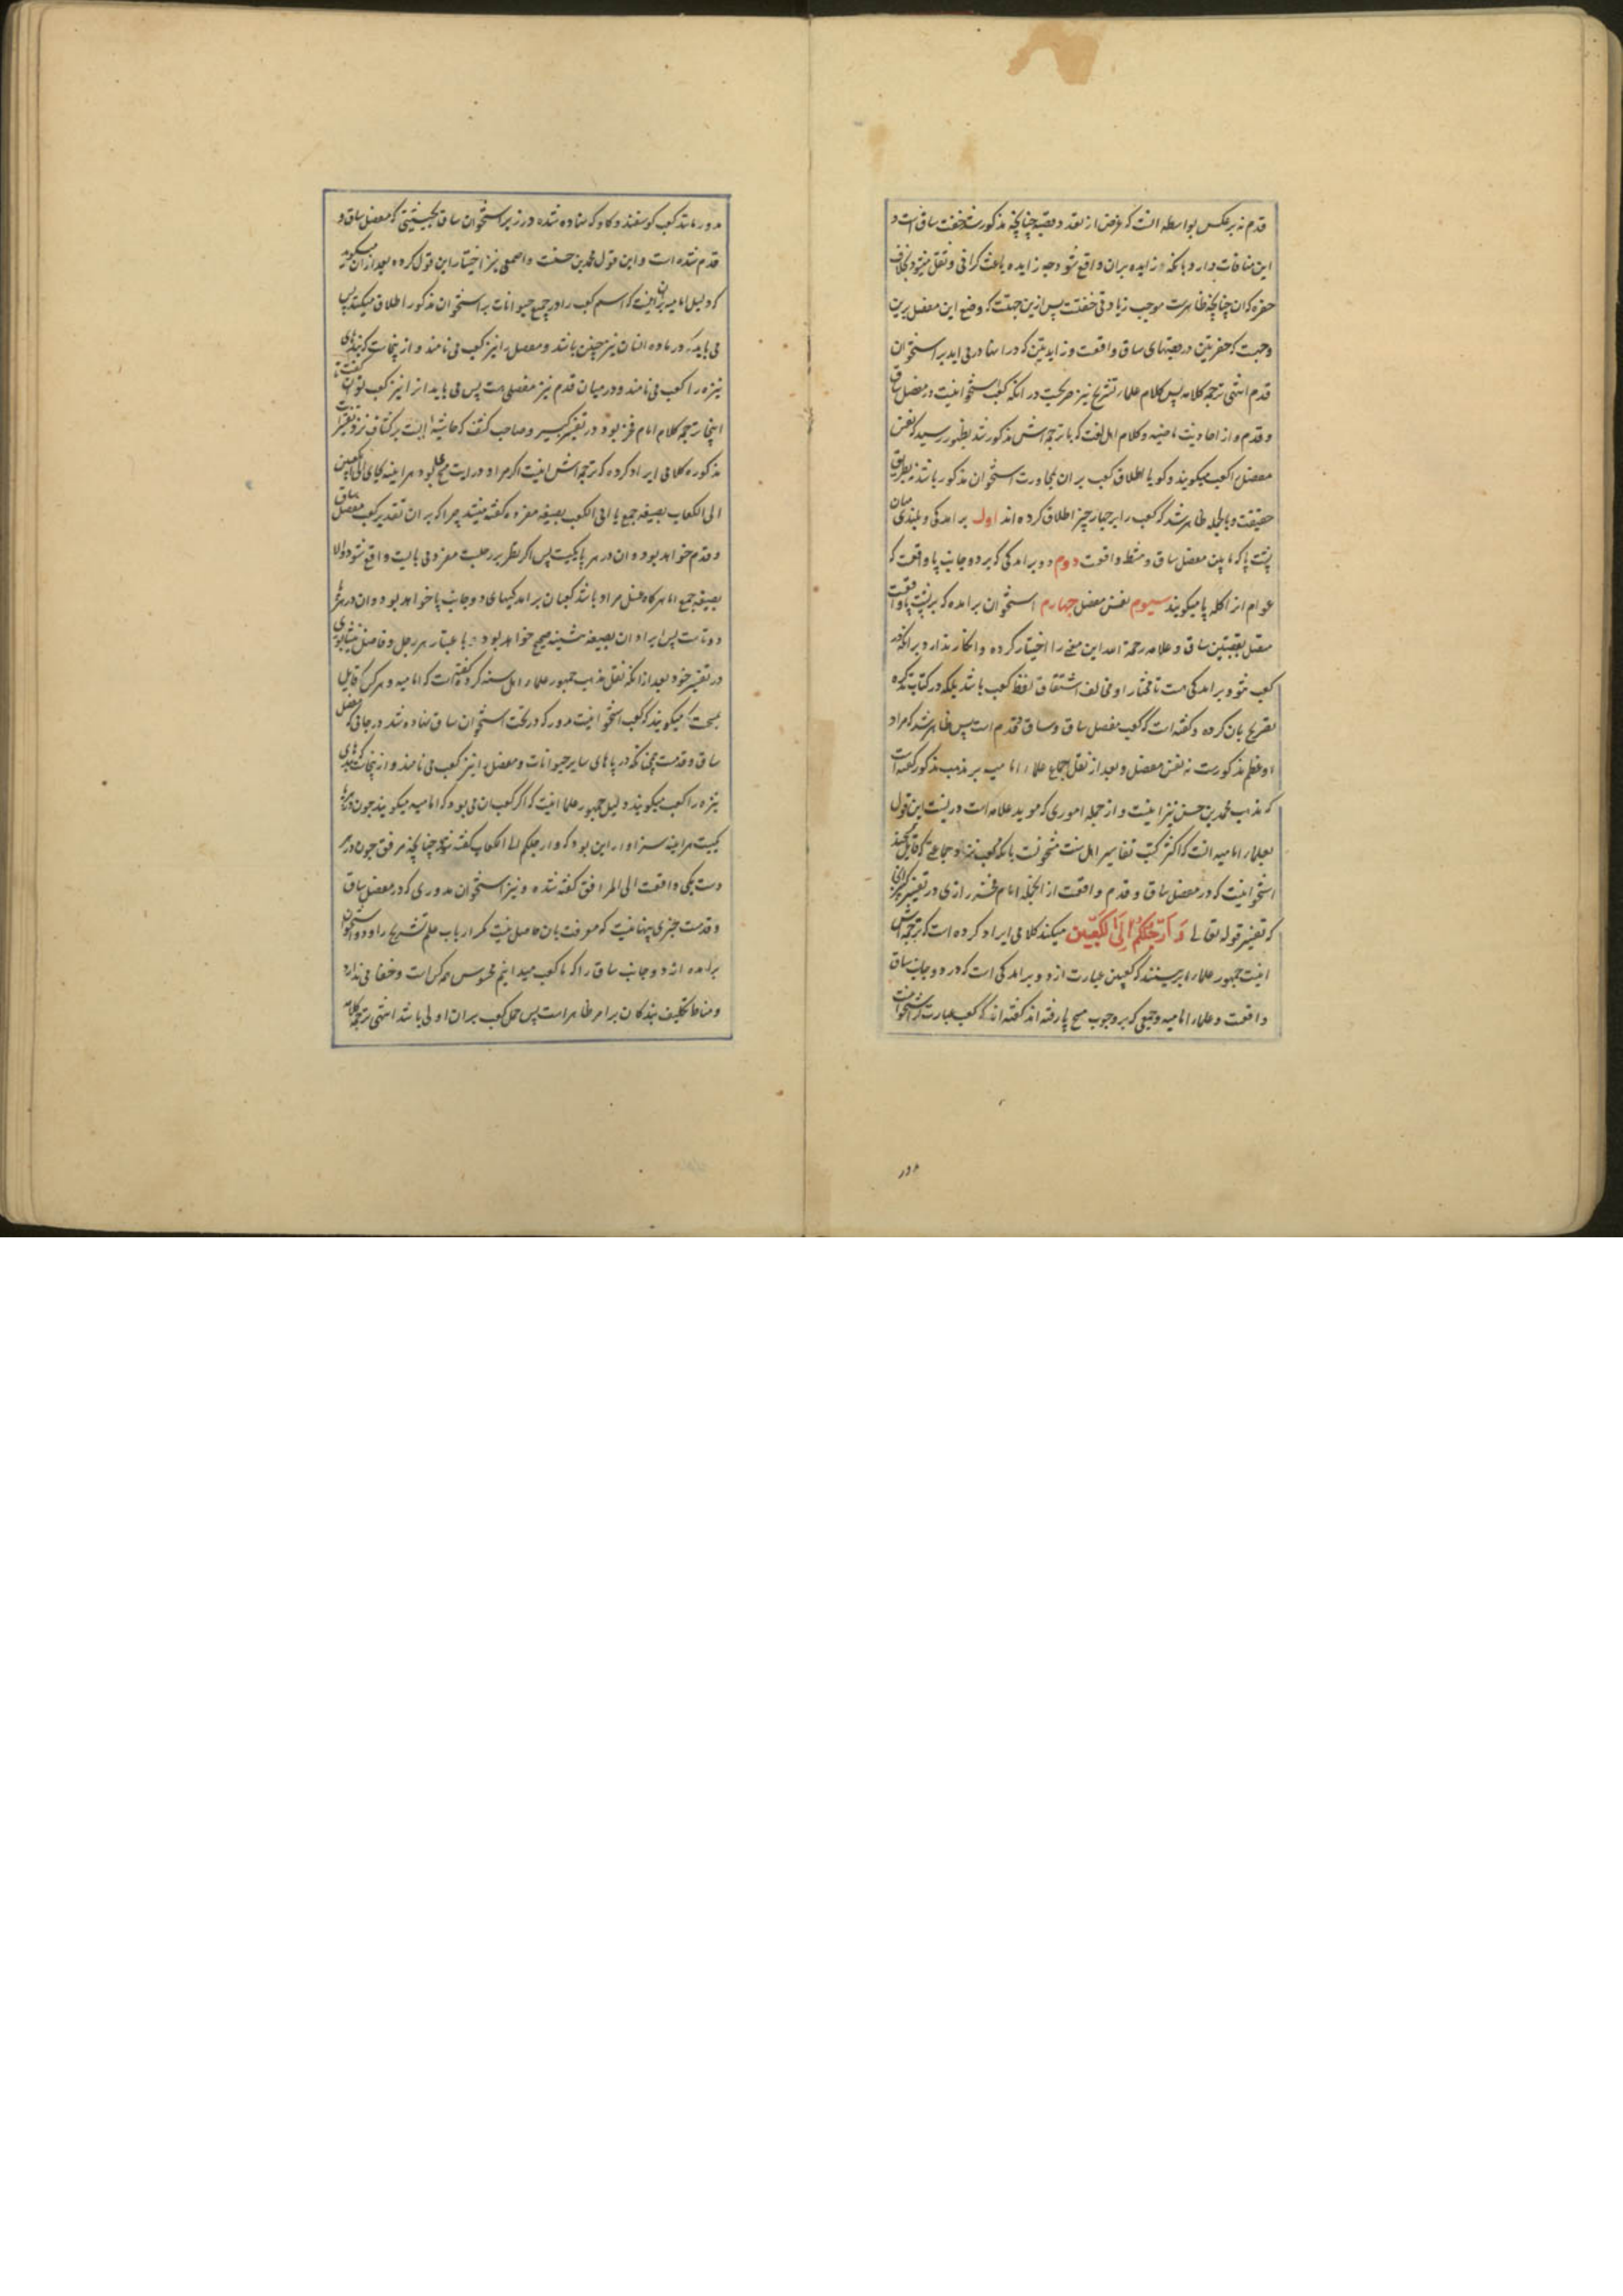 قدم نه بر عکس بواسطه انست که غرض از تعدد قصبه چنانچه مذکور شد خفت ساق است و
این منافات دارد بانکه زایده بران واقع شود چه زایده باعث کرانی و ثقل میشود بخلاف
حفره که ان چنانچه ظاهرست موجب زیادتی خفتست پس ازین جهتست که وضع این مفصل برین
وجهست که حفرتین در قصبتهای ساق واقعست و زایدتین که در انها در می اید بر استخوان
قدم انتهی ترجمة کلامه پس کلام علماء تشریح نیز صریحست در انکه کعب استخوانیست در مفصل ساق
و قدم و از احادیث ماضیه و کلام اهل لغت که با ترجمه اش مذکور شد بظهور رسید که نفس
مفصل را کعب میکویند و کویا اطلاق کعب بر ان بمجاورت استخوان مذکور باشد نه بطریق
حقیقت و بالجمله ظاهر شد که کعب را بر چهار چیز اطلاق کرده اند اول بر امدکی و بلندی میان
پشت پا که مابین مفصل ساق و مشط واقعست دوم دو بر امدکی که بر دو جانب پا واقعست که
عوام از اکله پا میکویند سیوم نفس مفصل چهارم استخوان برامده که بر پشت پا واقعست
متصل بقصبتین ساق و علامه رحمه الله این معنی را اختیار کرده و انکار ندارد بر انکه در
کعب نتو و بر امدکی هست تا مختار او مخالف اشتقاق لفظ کعب باشد بلکه در کتاب تذکره
تصریح بان کرده و کفته است که کعب مفصل ساق و ساق قدم است پس ظاهر شد که مراد
او عظم مذکورست نه نفس مفصل و بعد از نقل اجماع علماء امامیه بر مذهب مذکور کفته است
که مذهب محمد بن حسن نیز اینست و از جمله اموری که موید علامه است در نسبت این قول
بعلماء امامیه انست که اکثر کتب تفاسیر اهل سنت مشحونست بانکه کعب نزد جماعتی که قایل بمسحند
استخوانیست که در مفصل ساق و قدم واقعست از انجمله امام فخر رازی در تفسیر کبیر
که تفسیر قوله تعالی وَاَرْجُلَكُمْ اِلَى الْكَعْبَيْن میکند کلامی ایراد کرده است که ترجمه اش
اینست جمهور علماء برینند که کعبین عبارت از دو بر امدکی است که در دو جانب ساق
واقعست و علماء امامیه و جمعی که بر وجوب مسح پا رفته اند کفته اند که کعب عبارت از استخوانیست
مدور
مدور مانند کعب کوسفند و کاو که نهاده شده در زیر استخوان ساق بحیثیتی که مفصل ساق و
قدم شده است و این قول محمد بن حسنست و اصمعی نیز اختیار این قول کرده و بعد ازان میکوید
که دلیل امامیه بران اینست که اسم کعب را در جمیع حیوانات بر استخوان مذکور اطلاق میکنند پس
می باید که در ماده انسان نیز چنین باشد و مفصل را نیز کعب می نامند و از ینجاست که بندهای
نیزه را کعب می نامند و در میان قدم نیز مفصلی هست پس می باید انرا نیز کعب توان کفت تا
اینجا ترجمه کلام امام فخر بود در تفسیر کبیر و صاحب کشف که حاشیه ایست بر کشاف نزد تفسیر ایت
مذکوره کلامی ایراد کرده که ترجمه اش اینست اکر مراد در ایت مسح رجلین بود هر اینه بجای الی الکعبین
الی الکعاب بصیغه جمع یا الی الکعب بصیغه مفرد کفته میشد چرا که بر ان تقدیر کعب مفصل ساق
و قدم خواهد بود و ان در هر پا یکیست پس اکر نظر بر رجلست مفرد می بایست واقع شود والا
بصیغه جمع اما هر کاه غسل مراد باشد کعبان بر امدکیهای دو جانب پا خواهد بود و ان در هر پا
دوتاست پس ایراد ان بصیغه تثنیه صحیح خواهد بود با عتبار هر رجل و فاضل نیشابوری
در تفسیر خود بعد از انکه نقل مذهب جمهور علماء اهل سنه کرده کفته است که امامیه و هر کس قایل
بمسحت میکویند که کعب استخوانیست مدور که در تحت استخوان ساق نهاده شد در جائی که مفصل
ساق و قدمست چنانکه در پاهای سایر حیوانات و مفصل را نیز کعب می نامند و از ینجاست که بندهای
نیزه را کعب میکویند دلیل جمهور علما اینست که اکر کعب ان می بود که امامیه میکویند چون در هر پا
یکیست هر اینه سزاوار این بود که و ارجلکم الی الکعاب کفته شود چنانچه مرفق چون در هر
دست یکی واقعست الی المرافق کفته شده و نیز استخوان مدوری که در مفصل ساق
و قدمست چیزی پنهانیست که معرفت بان حاصل نیست مکر ارباب علم تشریح را و دو استخوان
بر امده از دو جانب ساق را که ما کعب میدانیم محسوس هر کس است و خفا می ندارد
و مناط تکلیف بندکان بر امر ظاهر است پس حمل کعب بران اولی باشد انتهی ترجمة کلامه